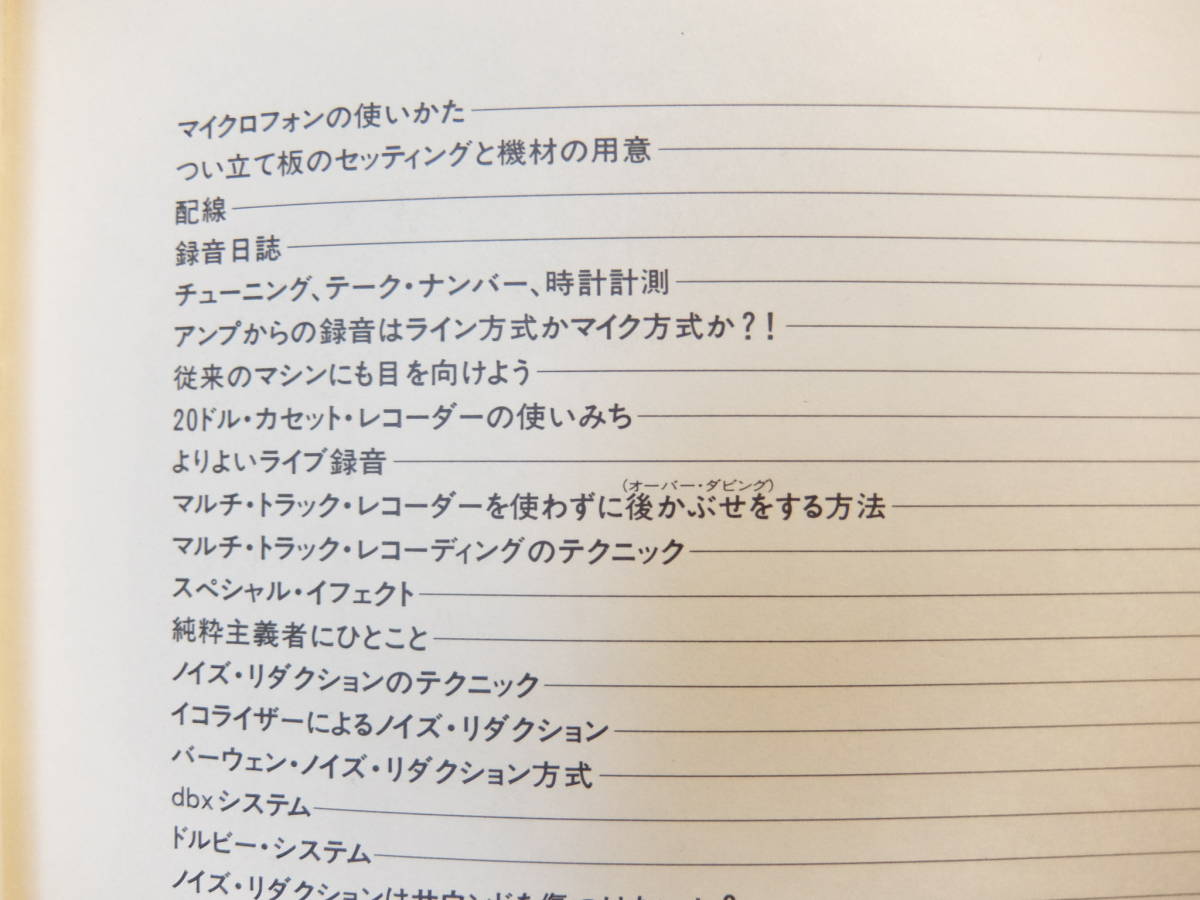 マイクロフォンの使いかた
つい立て板のセッティングと機材の用意
配線
録音日誌
チューニング、テーク・ナンバー、時計計測
アンプからの録音はライン方式かマイク方式か?!
従来のマシンにも目を向けよう
20ドル・カセット・レコーダーの使いみち
よりよいライブ録音
(オーバー・ダビング)
マルチ・トラック・レコーダーを使わずに後かぶせをする方法
マルチ・トラック・レコーディングのテクニック
スペシャル・イフェクト
純粋主義者にひとこと
ノイズ・リダクションのテクニック
イコライザーによるノイズ・リダクション
バーウェン・ノイズ・リダクション方式
dbxシステム
ドルビー・システム
ノイズ・リダクションはサウンドを